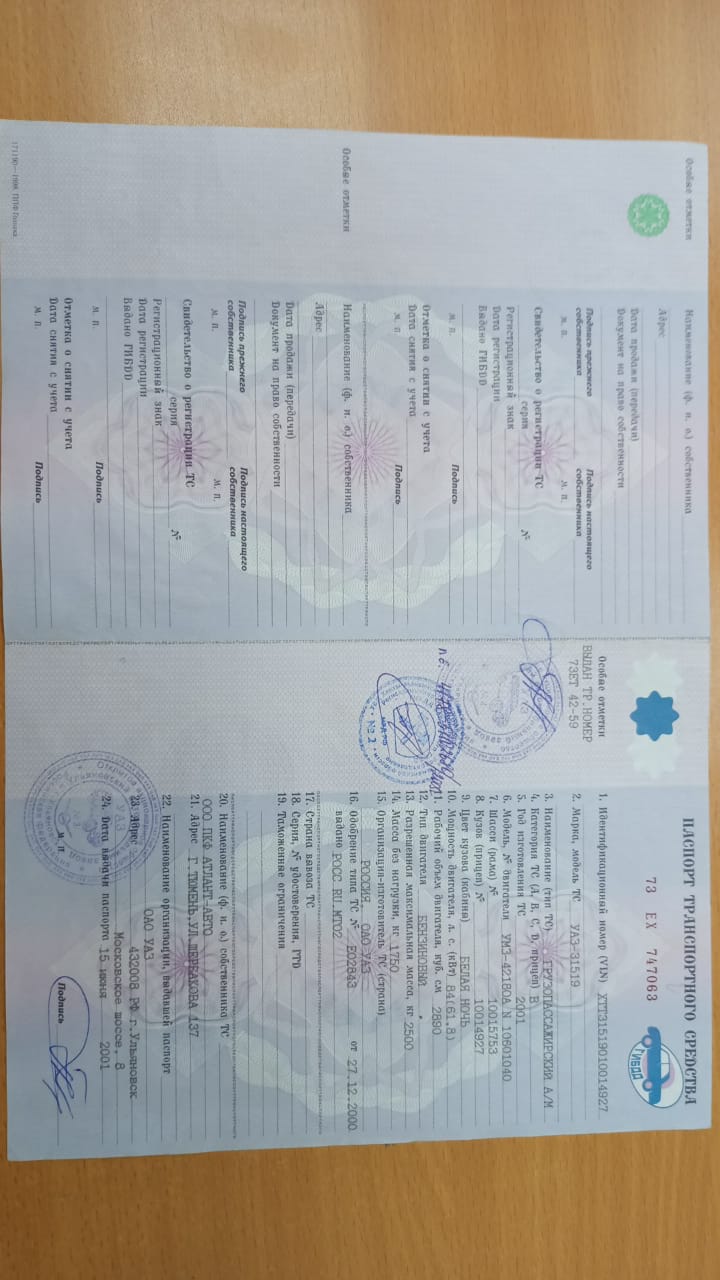 ПАСПОРТ ТРАНСПОРТНОГО СРЕДСТВА
73 ЕХ 747063
ГИБДД
1. Идентификационный номер (VIN) XTT31519010014927
2. Марка, модель ТС УАЗ-31519
3. Наименование (тип ТС) ГРУЗОПАССАЖИРСКИЙ А/М
4. Категория ТС (А, В, С, D, прицеп) В
5. Год изготовления ТС 2001
6. Модель, № двигателя УМЗ-42180А N 10601040
7. Шасси (рама) № 10015753
8. Кузов (прицеп) № 10014927
9. Цвет кузова (кабины) БЕЛАЯ НОЧЬ
10. Мощность двигателя, л. с. (кВт) 84(61.8)
11. Рабочий объем двигателя, куб. см 2890
12. Тип двигателя БЕНЗИНОВЫЙ
13. Разрешенная максимальная масса, кг 2500
14. Масса без нагрузки, кг 1750
15. Организация-изготовитель ТС (страна)
РОССИЯ ОАО УАЗ
16. Одобрение типа ТС № Е02843 от 27.12.2000
выдано РОСС RU.МТ02
17. Страна вывоза ТС
18. Серия, № удостоверения, ГТД
19. Таможенные ограничения
20. Наименование (ф. и. о.) собственника ТС
ООО ПКФ АТЛАНТ-АВТО
21. Адрес Г.ТЮМЕНЬ,УЛ.ЩЕРБАКОВА 137
22. Наименование организации, выдавшей паспорт
ОАО УАЗ
23. Адрес 432008 РФ г.Ульяновск
Московское шоссе, 8
24. Дата выдачи паспорта 15 июня 2001
М. П.
Подпись
Особые отметки
ВЫДАН ТР.НОМЕР
73ЕТ 42-59
Особые отметки
Наименование (ф. и. о.) собственника
Адрес
Дата продажи (передачи)
Документ на право собственности
Подпись прежнего собственника
Подпись настоящего собственника
М. П.
М. П.
Свидетельство о регистрации ТС
серия №
Регистрационный знак
Дата регистрации
Выдано ГИБДД
М. П.
Подпись
Отметка о снятии с учета
Дата снятия с учета
М. П.
Подпись
Особые отметки
Наименование (ф. и. о.) собственника
Адрес
Дата продажи (передачи)
Документ на право собственности
Подпись прежнего собственника
Подпись настоящего собственника
М. П.
М. П.
Свидетельство о регистрации ТС
серия №
Регистрационный знак
Дата регистрации
Выдано ГИБДД
М. П.
Подпись
Отметка о снятии с учета
Дата снятия с учета
М. П.
Подпись